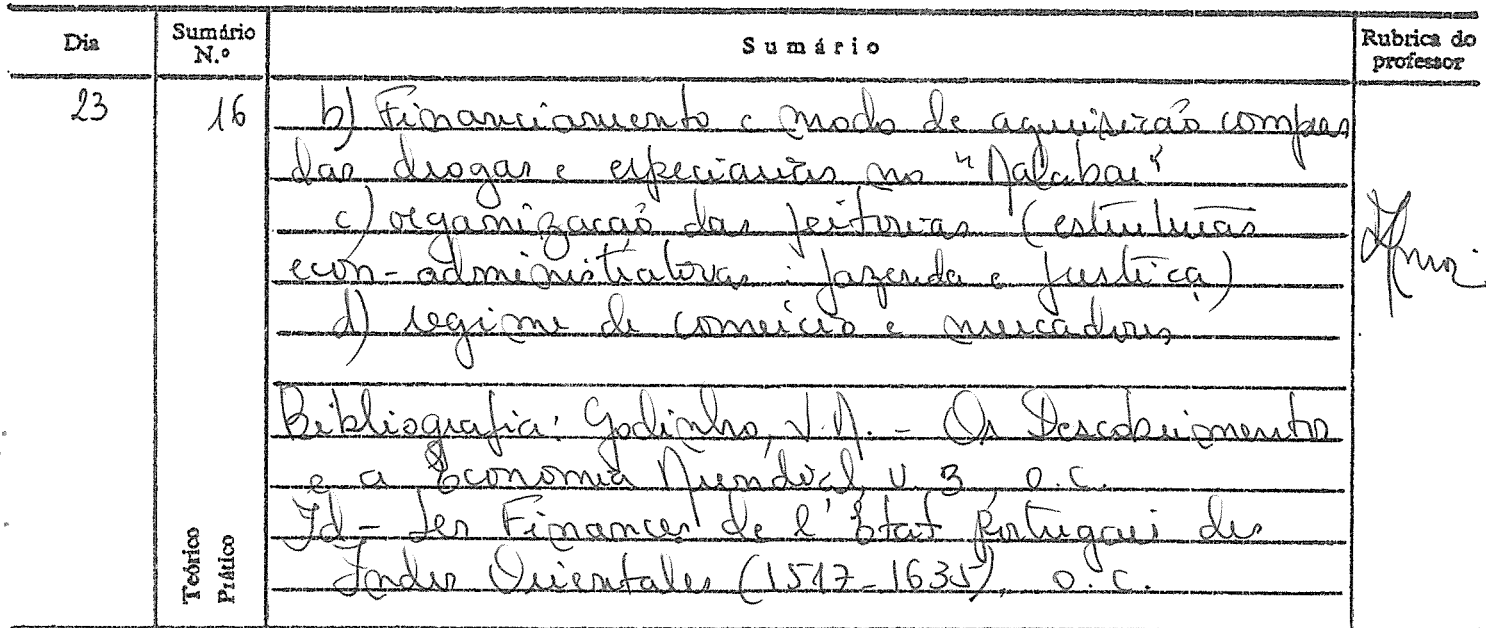 Dia Sumário N.º Sumário Rubrica do professor
23 16 b) Financiamento e modo de aquisição compras
das drogas e especiarias no "Malabar"
c) organização das feitorias (estruturas
econ-administrativas: fazenda e justiça)
d) regime de comércio e mercadores
Bibliografia: Godinho, V.M. - Os Descobrimentos
e a Economia Mundial, v. 3, o.c.
Id - Les Finances de l'État Portugais des
Indes Orientales (1517-1635), o.c.
Teórico
Prático